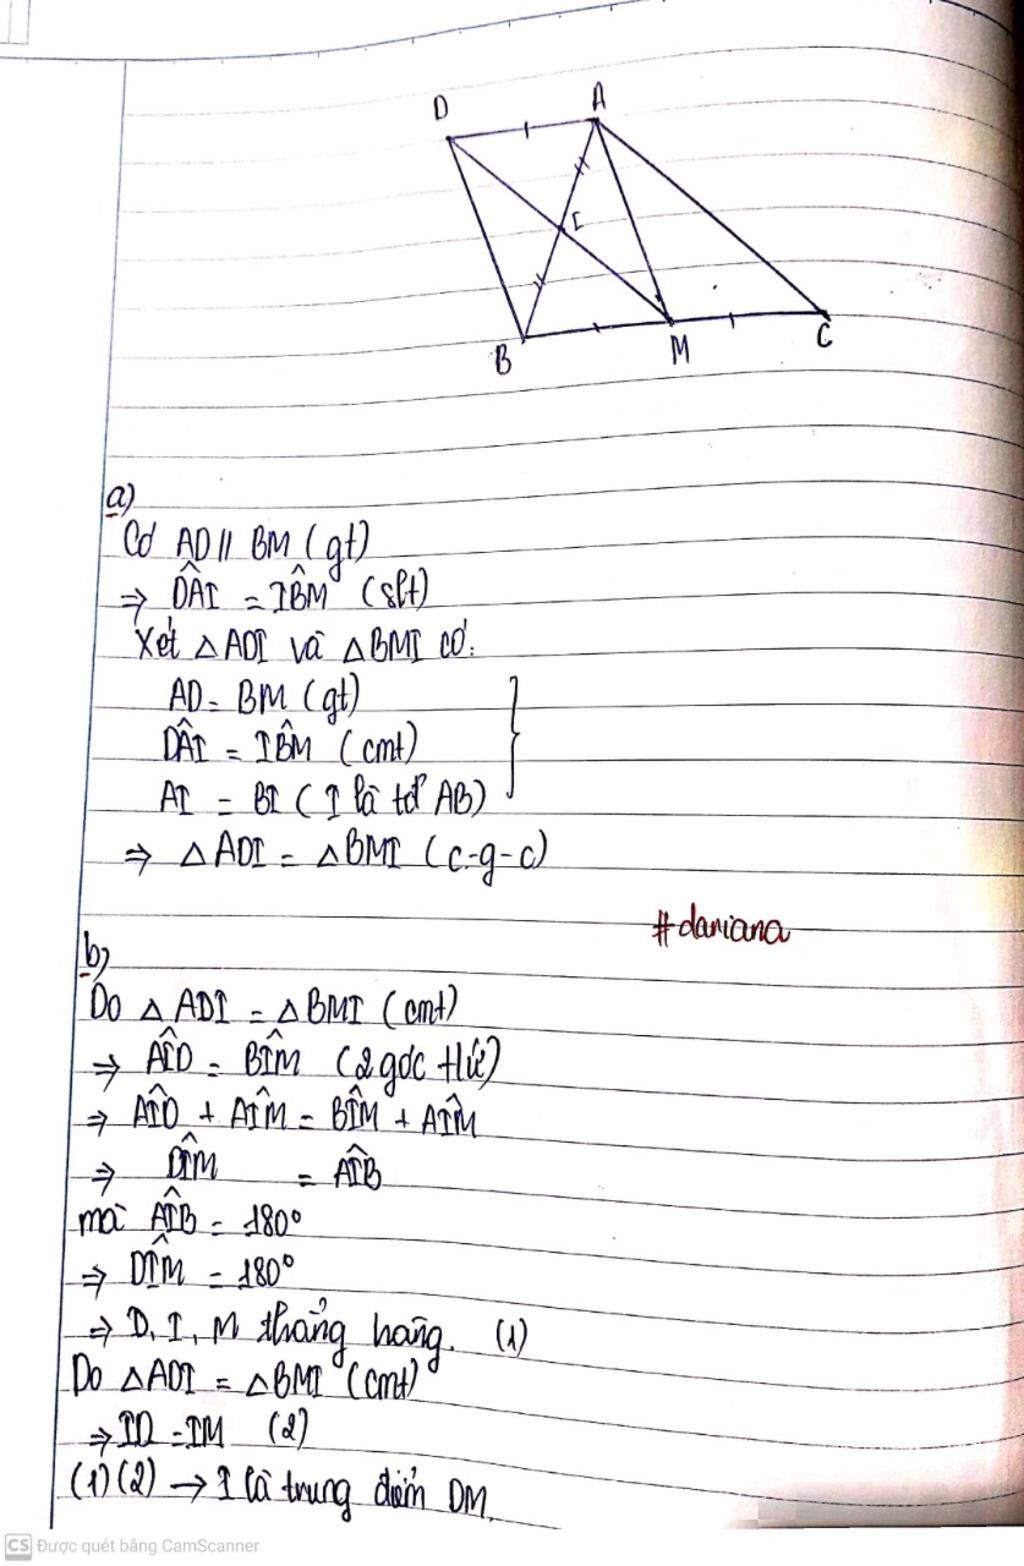 D A
I
B M C
a)
Có AD // BM (gt)
⇒ DÂI = IB̂M (slt)
Xét △ADI và △BMI có:
AD = BM (gt)
DÂI = IB̂M (cmt)
AI = BI (I là tđ AB)
⇒ △ADI = △BMI (c-g-c)
#daniana
b)
Do △ADI = △BMI (cmt)
⇒ AÎD = BÎM (2 góc tứ)
⇒ AÎD + AÎM = BÎM + AÎM
⇒ DÎM = AÎB
mà AÎB = 180°
⇒ DÎM = 180°
⇒ D, I, M thẳng hàng. (1)
Do △ADI = △BMI (cmt)
⇒ ID = IM (2)
(1) (2) → I là trung điểm DM.
CS Được quét bằng CamScanner